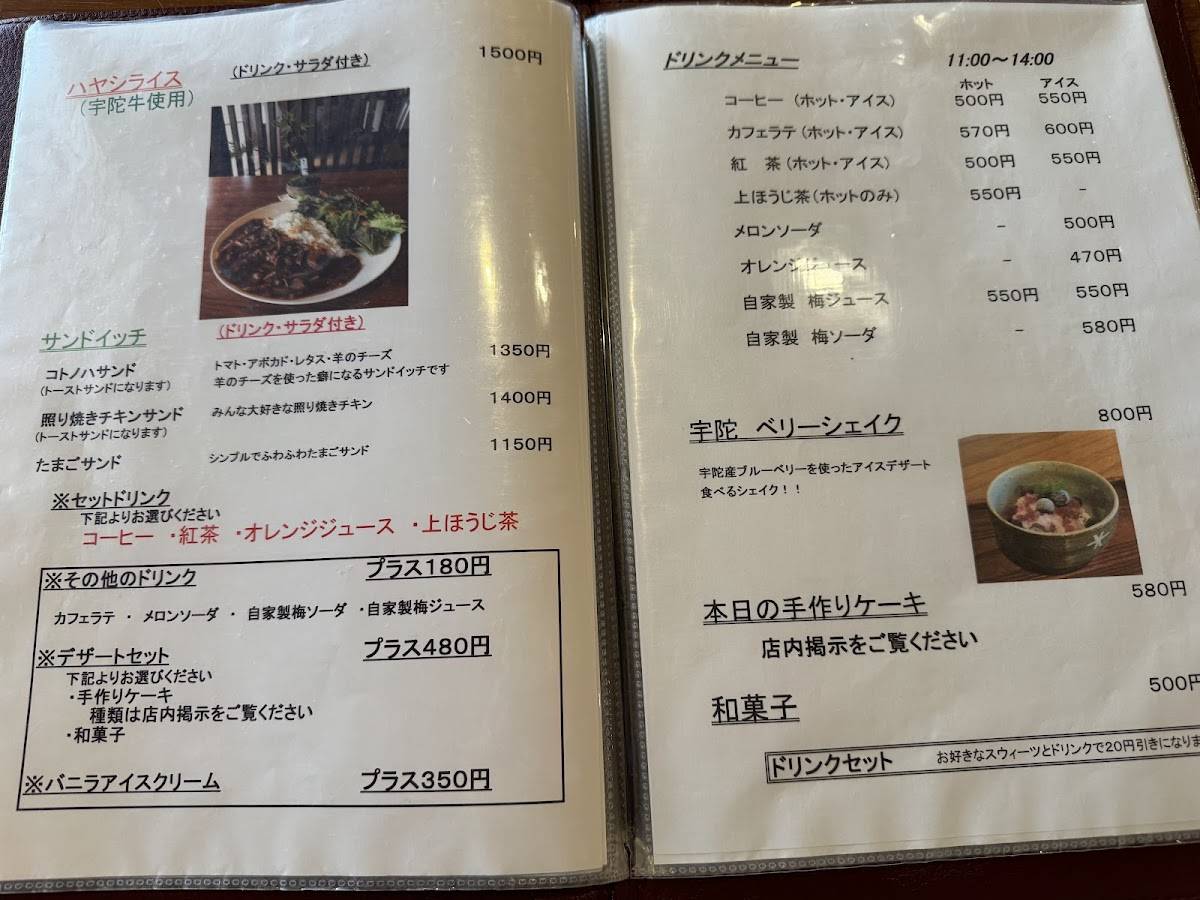 ハヤシライス (ドリンク・サラダ付き) 1500円
(宇陀牛使用)
サンドイッチ (ドリンク・サラダ付き)
コトノハサンド トマト・アボカド・レタス・羊のチーズ 1350円
(トーストサンドになります) 羊のチーズを使った癖になるサンドイッチです
照り焼きチキンサンド みんな大好きな照り焼きチキン 1400円
(トーストサンドになります)
たまごサンド シンプルでふわふわたまごサンド 1150円
※セットドリンク
下記よりお選びください
コーヒー ・紅茶 ・オレンジジュース ・上ほうじ茶
※その他のドリンク プラス180円
カフェラテ ・ メロンソーダ ・ 自家製梅ソーダ ・自家製梅ジュース
※デザートセット プラス480円
下記よりお選びください
・手作りケーキ
種類は店内掲示をご覧ください
・和菓子
※バニラアイスクリーム プラス350円
ドリンクメニュー 11:00～14:00
ホット アイス
コーヒー (ホット・アイス) 500円 550円
カフェラテ (ホット・アイス) 570円 600円
紅 茶 (ホット・アイス) 500円 550円
上ほうじ茶(ホットのみ) 550円 -
メロンソーダ - 500円
オレンジジュース - 470円
自家製 梅ジュース 550円 550円
自家製 梅ソーダ - 580円
宇陀 ベリーシェイク 800円
宇陀産ブルーベリーを使ったアイスデザート
食べるシェイク！！
本日の手作りケーキ 580円
店内掲示をご覧ください
和菓子 500円
ドリンクセット お好きなスウィーツとドリンクで20円引きになりま